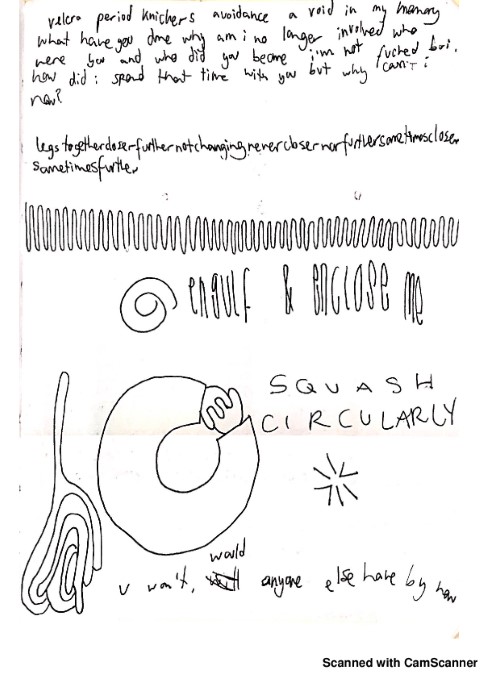 velcro period knickers avoidance a void in my memory
what have you done why am i no longer involved who
were you and who did you become i'm not fucked but.
how did i spend that time with you but why can't i
now?
legstogethercloserfurthernotchangingnevercloser norfurthersometimescloser
sometimesfurther
engulf & enclose me
SQUASH
CIRCULARLY
would
u won't, anyone else have by now
Scanned with CamScanner